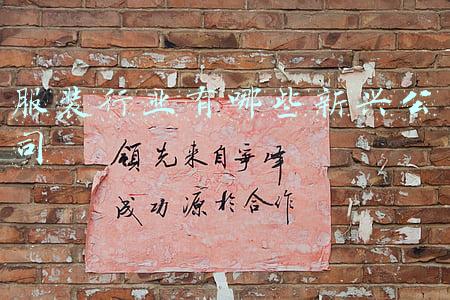 服装行业有哪些新兴公
司
领先来自争峰
成功源于合作